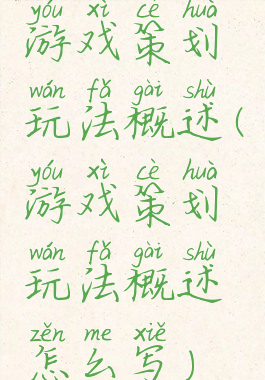 yóu xì cè huà
游戏策划
wán fǎ gài shù
玩法概述(
yóu xì cè huà
游戏策划
wán fǎ gài shù
玩法概述
zěn me xiě
怎么写)